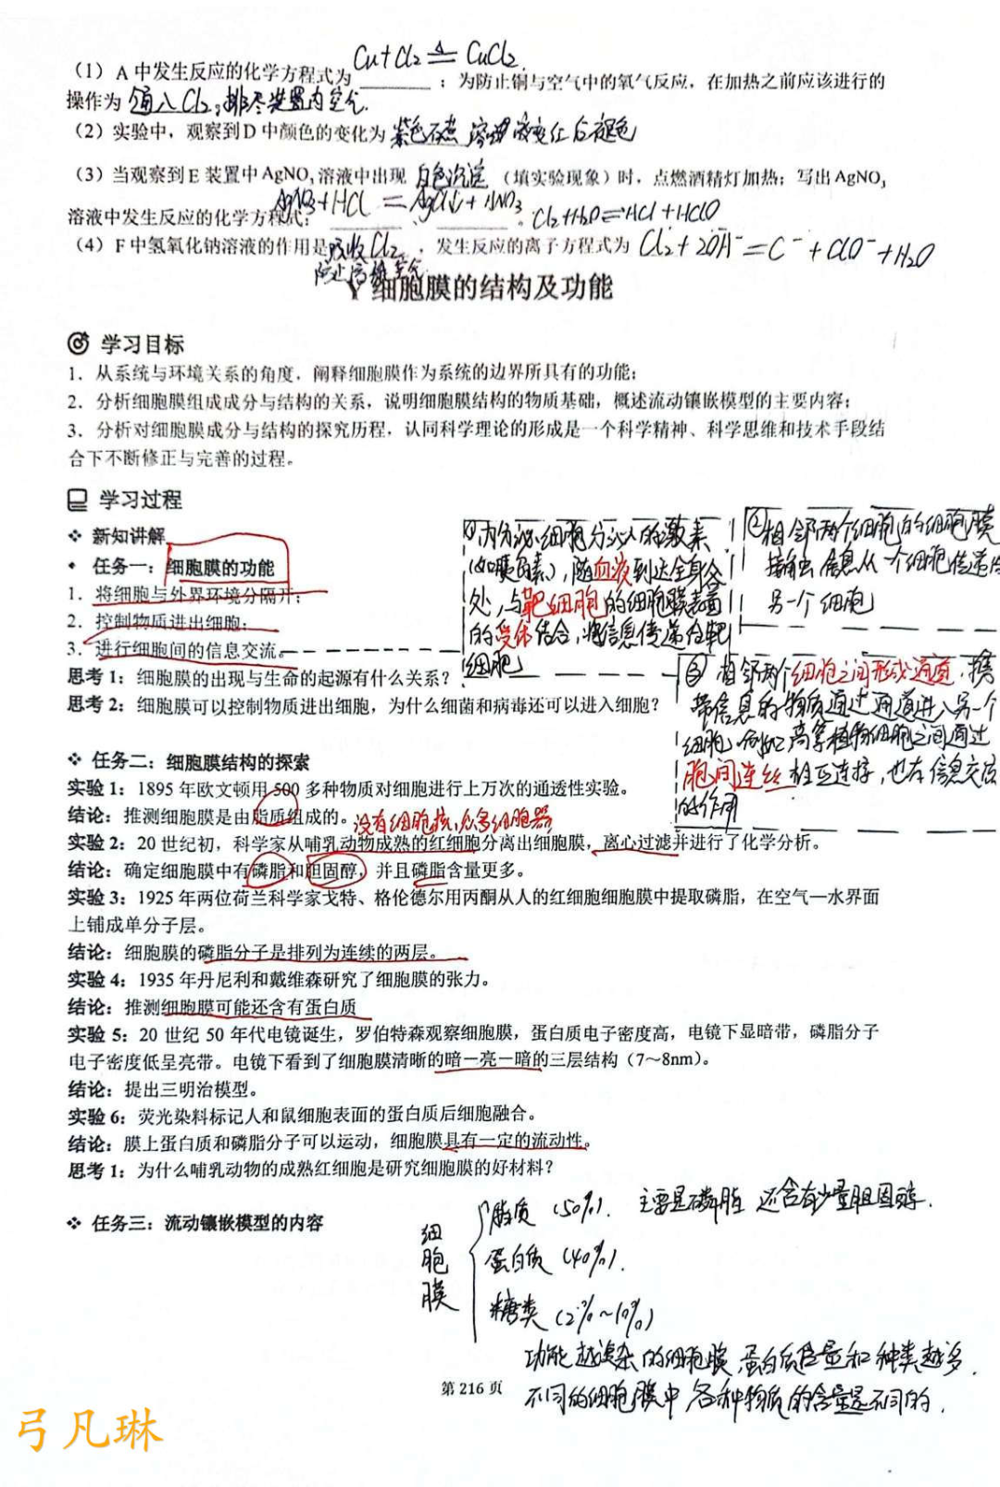 Cu+Cl₂ ≜ CuCl₂.
（1）A 中发生反应的化学方程式为________；为防止铜与空气中的氧气反应，在加热之前应该进行的
操作为 通入Cl₂,排尽装置内空气.
（2）实验中，观察到 D 中颜色的变化为 紫色石蕊溶液变红后褪色
（3）当观察到 E 装置中 AgNO₃ 溶液中出现 白色沉淀 （填实验现象）时，点燃酒精灯加热；写出 AgNO₃
AgNO₃+HCl = AgCl↓+HNO₃
溶液中发生反应的化学方程式：________、________。Cl₂+H₂O⇌HCl+HClO
（4）F 中氢氧化钠溶液的作用是 吸收Cl₂ ，发生反应的离子方程式为 Cl₂+2OH⁻=C⁻+ClO⁻+H₂O
防止污染空气.
细胞膜的结构及功能
学习目标
1．从系统与环境关系的角度，阐释细胞膜作为系统的边界所具有的功能；
2．分析细胞膜组成成分与结构的关系，说明细胞膜结构的物质基础，概述流动镶嵌模型的主要内容；
3．分析对细胞膜成分与结构的探究历程，认同科学理论的形成是一个科学精神、科学思维和技术手段结
合下不断修正与完善的过程。
学习过程
❖ 新知讲解
❖ 任务一：细胞膜的功能
1．将细胞与外界环境分隔开；
2．控制物质进出细胞；
3．进行细胞间的信息交流。
①内分泌细胞分泌的激素
(如胰岛素)，随血液到达全身各
处，与靶细胞的细胞膜表面
的受体结合，将信息传递给靶
细胞
②相邻两个细胞的细胞膜
接触 信息从一个细胞传递给
另一个细胞
③ 相邻两个细胞之间形成通道，携
带信息的物质通过通道进入另一个
细胞，例如：高等植物细胞之间通过
胞间连丝相互连接，也有信息交流
的作用
思考 1：细胞膜的出现与生命的起源有什么关系？
思考 2：细胞膜可以控制物质进出细胞，为什么细菌和病毒还可以进入细胞？
❖ 任务二：细胞膜结构的探索
实验 1：1895 年欧文顿用 500 多种物质对细胞进行上万次的通透性实验。
结论：推测细胞膜是由脂质组成的。没有细胞核，众多细胞器
实验 2：20 世纪初，科学家从哺乳动物成熟的红细胞分离出细胞膜，离心过滤并进行了化学分析。
结论：确定细胞膜中有磷脂和胆固醇，并且磷脂含量更多。
实验 3：1925 年两位荷兰科学家戈特、格伦德尔用丙酮从人的红细胞细胞膜中提取磷脂，在空气—水界面
上铺成单分子层。
结论：细胞膜的磷脂分子是排列为连续的两层。
实验 4：1935 年丹尼利和戴维森研究了细胞膜的张力。
结论：推测细胞膜可能还含有蛋白质
实验 5：20 世纪 50 年代电镜诞生，罗伯特森观察细胞膜，蛋白质电子密度高，电镜下显暗带，磷脂分子
电子密度低呈亮带。电镜下看到了细胞膜清晰的暗－亮－暗的三层结构（7～8nm）。
结论：提出三明治模型。
实验 6：荧光染料标记人和鼠细胞表面的蛋白质后细胞融合。
结论：膜上蛋白质和磷脂分子可以运动，细胞膜具有一定的流动性。
思考 1：为什么哺乳动物的成熟红细胞是研究细胞膜的好材料？
❖ 任务三：流动镶嵌模型的内容
细胞膜
脂质 (50%). 主要是磷脂 还含有少量胆固醇.
蛋白质 (40%).
糖类 (2%~10%)
功能越复杂的细胞膜，蛋白质含量和种类越多.
不同的细胞膜中 各种物质的含量是不同的.
第 216 页
弓凡琳